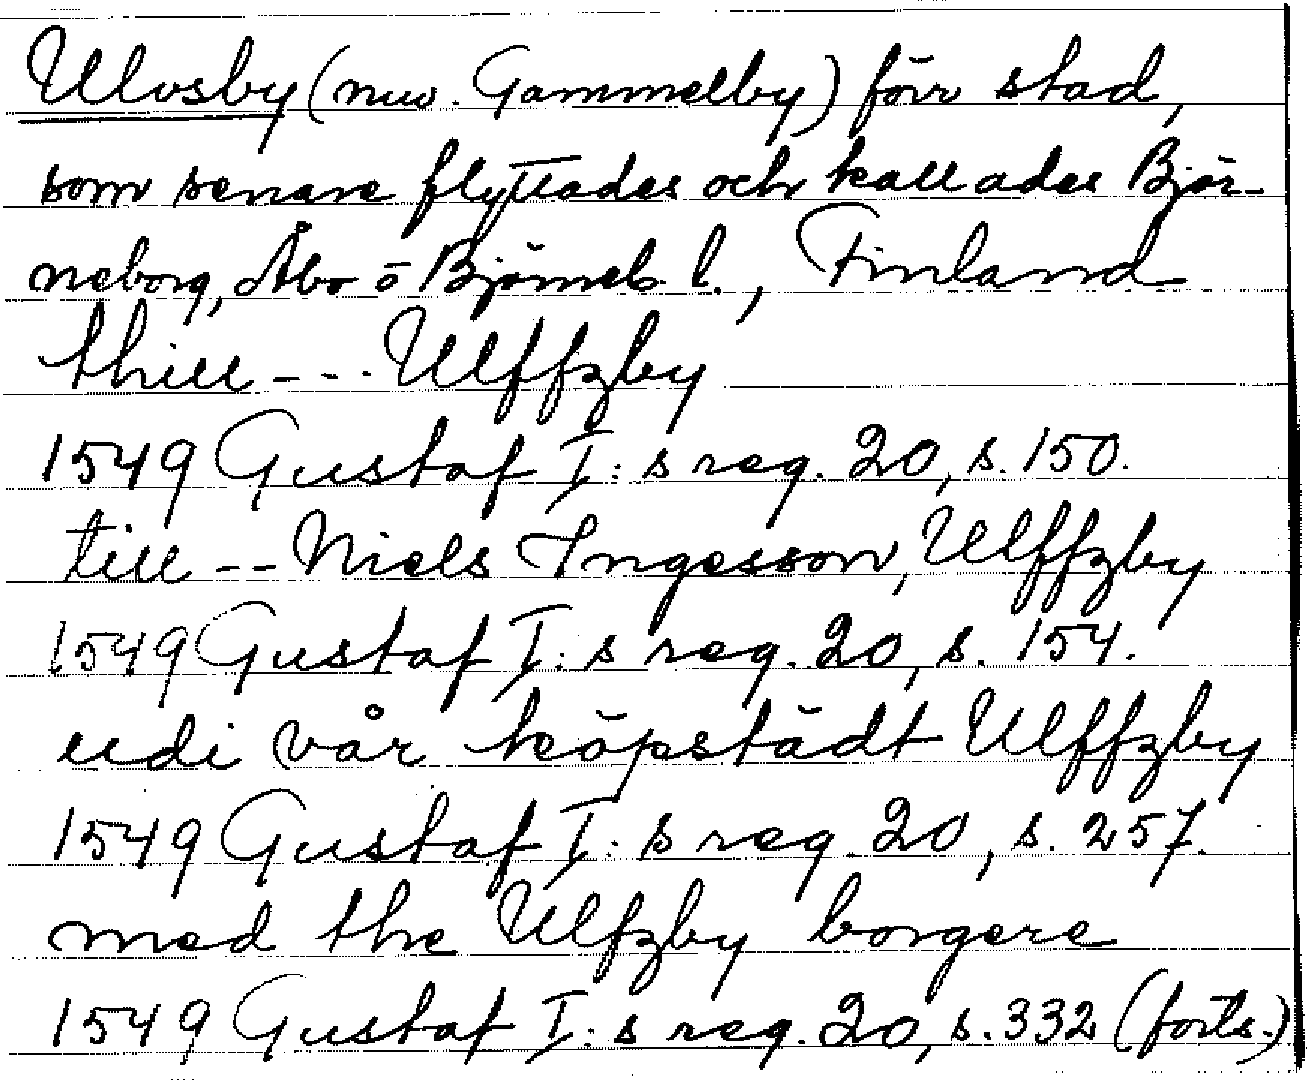 Ulvsby (nuv. Gammelby) förr stad,
som senare flyttades och kallades Björ-
neborg, Åbo o Björneb. l., Finland
thill - - - Ulffzby
1549 Gustaf I:s reg. 20, s. 150.
till - - Niels Ingesson, Ulffzby
1549 Gustaf I:s reg. 20, s. 154.
udi vår köpstädt Ulffzby
1549 Gustaf I:s reg. 20, s. 257.
med the Ulfzby borgere
1549 Gustaf I:s reg. 20, s. 332 (forts.)